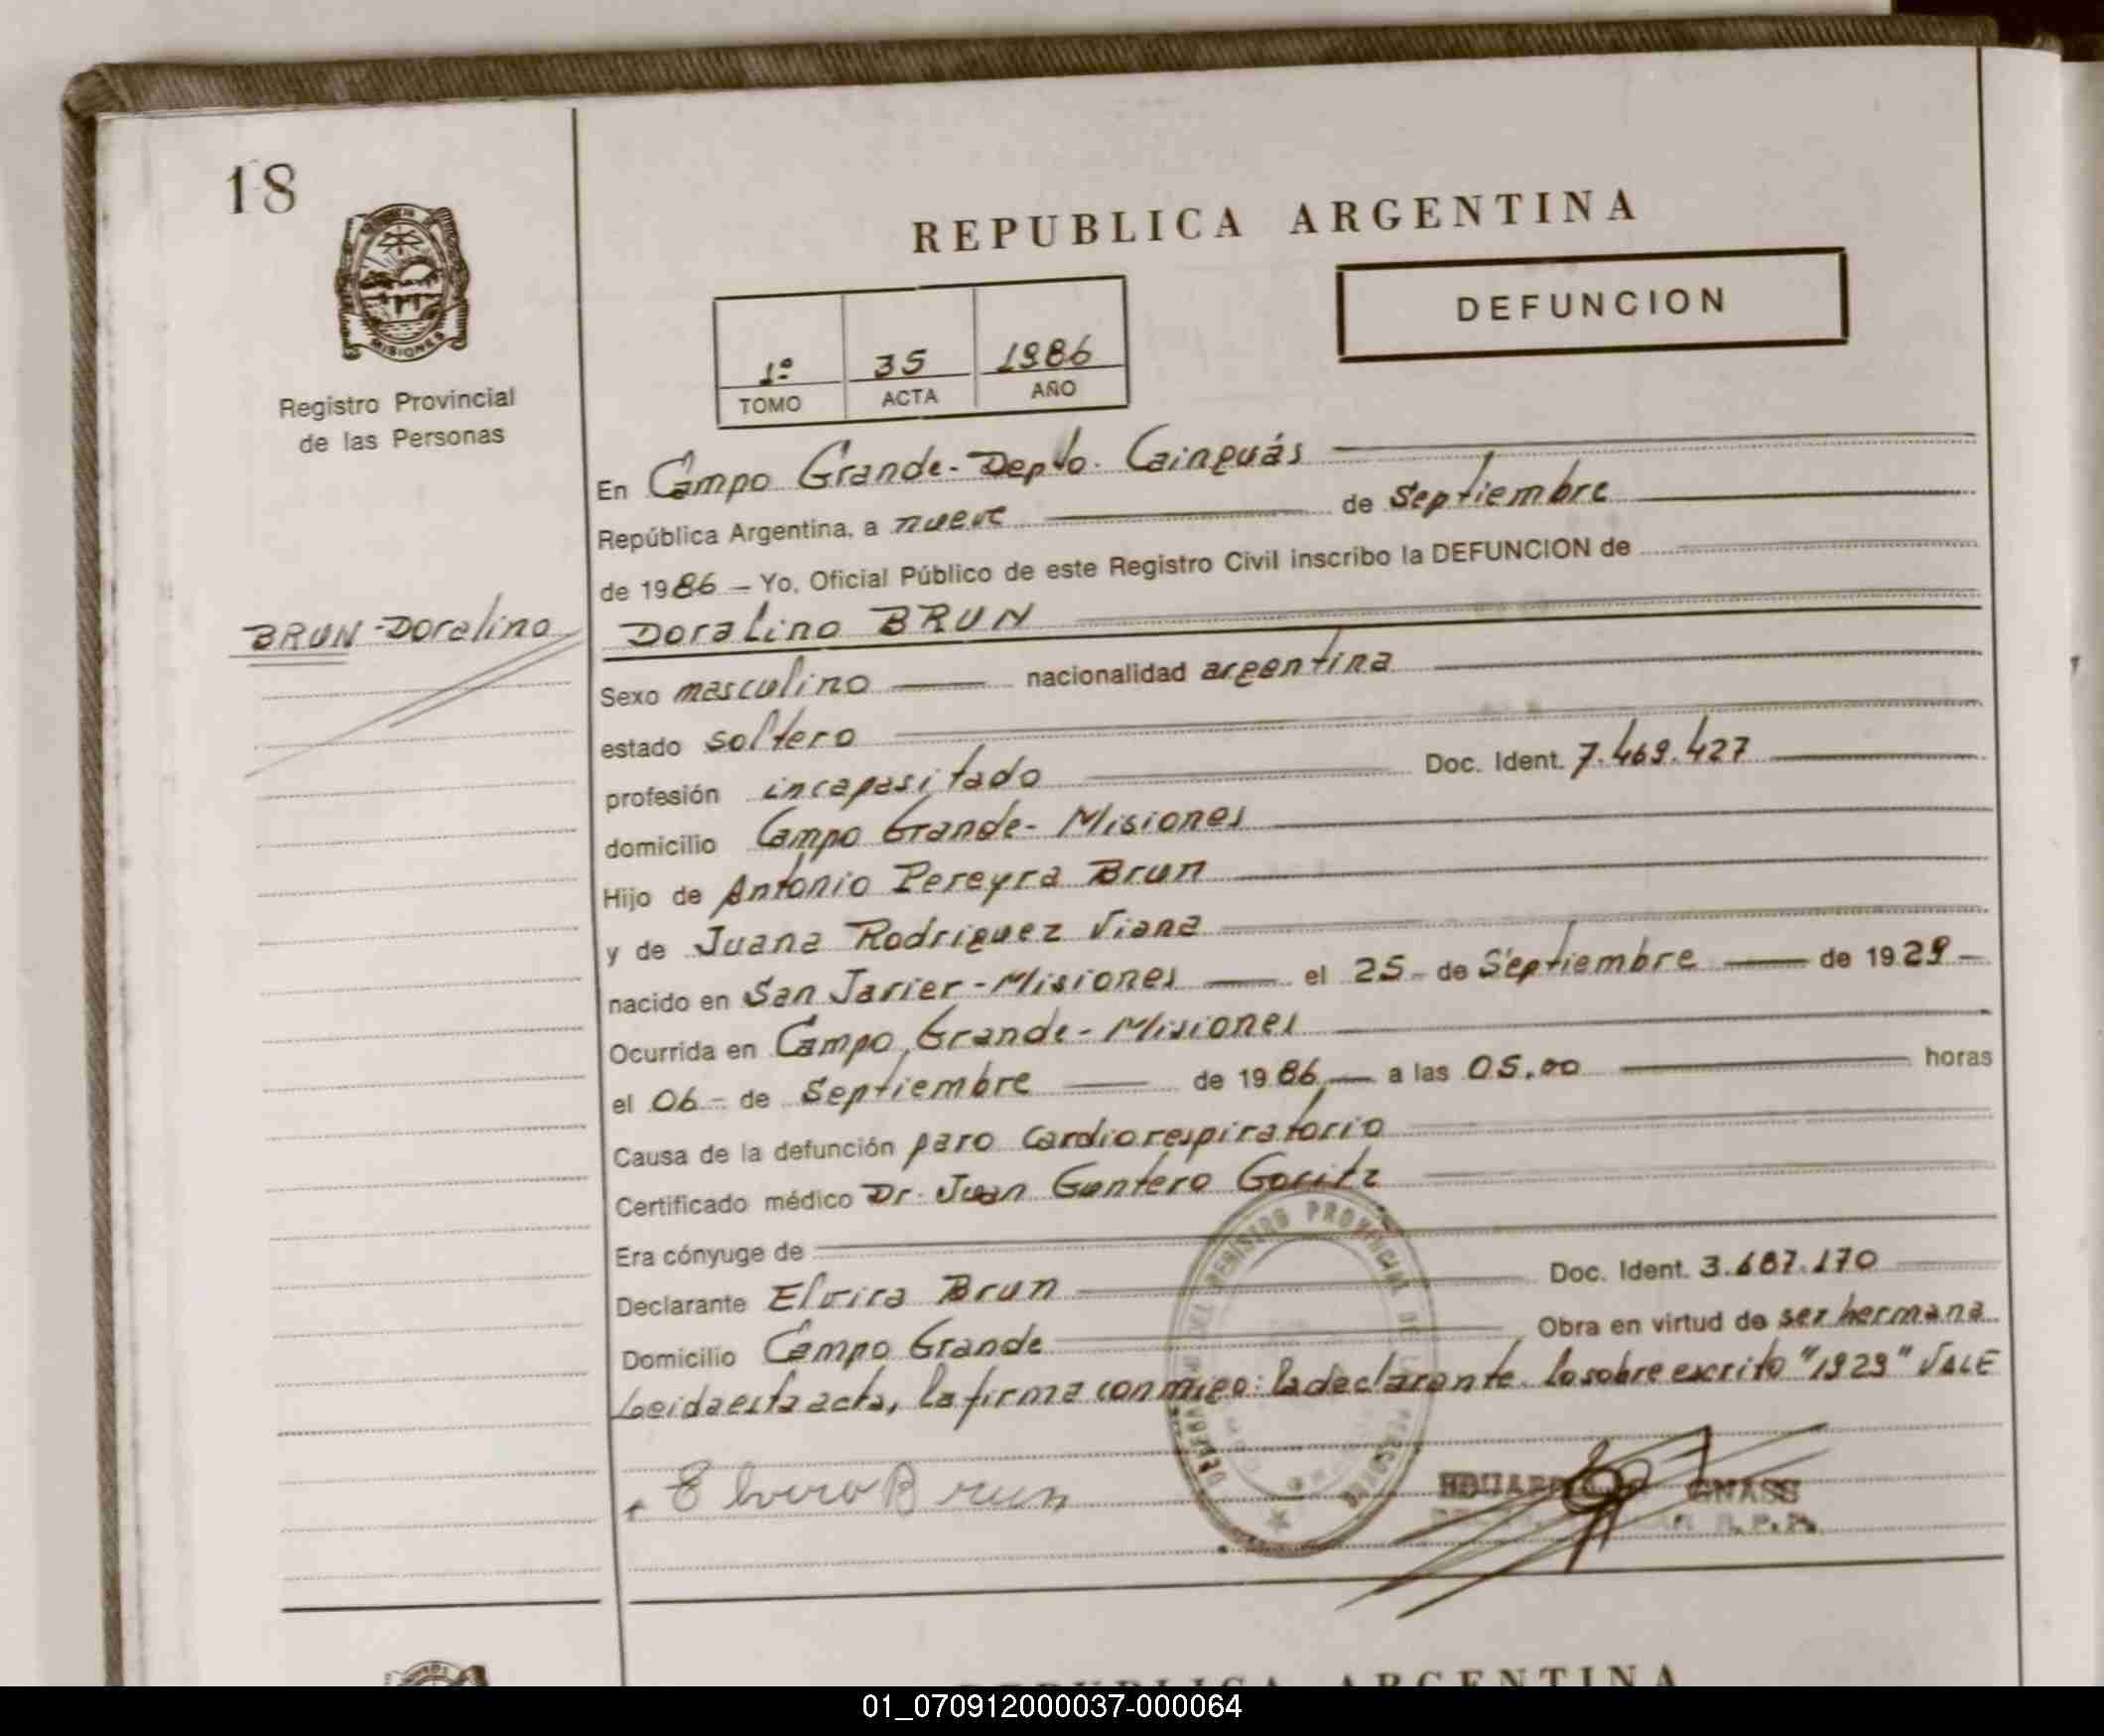 18
MISIONES
Registro Provincial
de las Personas
REPUBLICA ARGENTINA
DEFUNCION
1º 35 1986
TOMO ACTA AÑO
En Campo Grande - Depto. Cainguás
República Argentina, a nueve de Septiembre
de 1986 - Yo, Oficial Público de este Registro Civil inscribo la DEFUNCION de
BRUN - Doralino
Doralino BRUN
Sexo masculino nacionalidad argentina
estado soltero
profesión incapasitado Doc. Ident. 7.469.427
domicilio Campo Grande - Misiones
Hijo de Antonio Pereyra Brun
y de Juana Rodriguez Viana
nacido en San Javier - Misiones el 25 - de Septiembre de 1929 -
Ocurrida en Campo Grande - Misiones
el 06 - de Septiembre de 1986 a las 05.00 horas
Causa de la defunción paro cardiorespiratorio
Certificado médico Dr. Juan Guntero Goritz
Era cónyuge de
Declarante Elvira Brun Doc. Ident. 3.687.170
Domicilio Campo Grande Obra en virtud de ser hermana
Leida esta acta, la firma conmigo: la declarante. Lo sobre escrito "1929" VALE
Elvira Brun
EDUARDO GNASS
REPUBLICA ARGENTINA
01_070912000037-000064